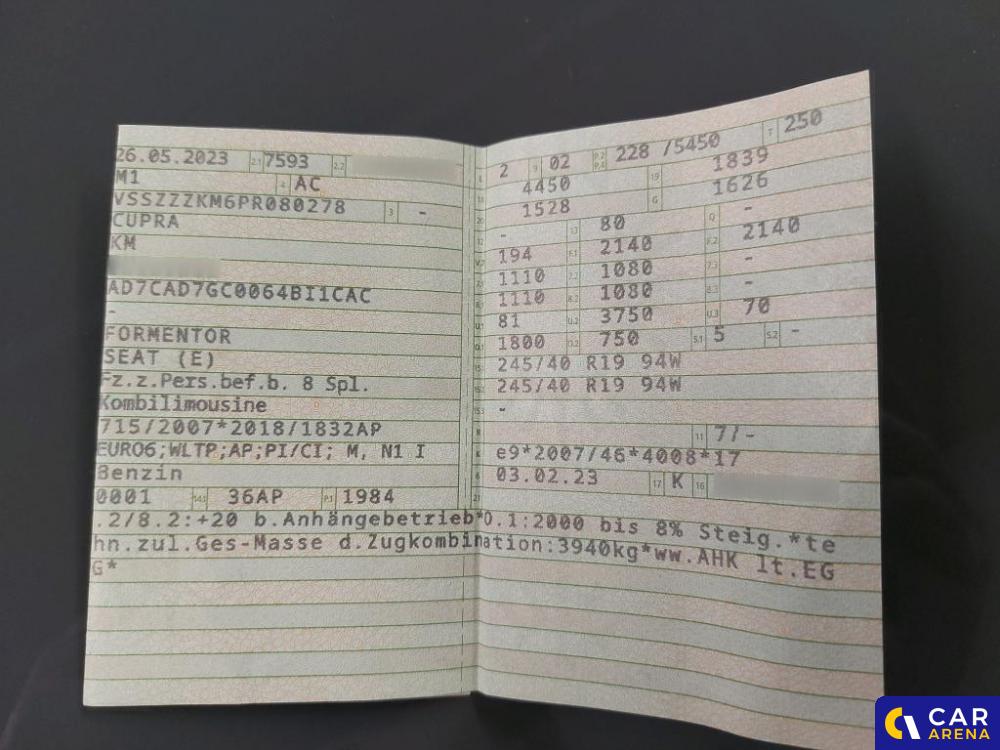 26.05.2023 2.1 7593 2.2
M1 4 AC
VSSZZZKM6PR080278 3 -
CUPRA
KM
AD7CAD7GC0064BI1CAC
-
FORMENTOR
SEAT (E)
Fz.z.Pers.bef.b. 8 Spl.
Kombilimousine
715/2007*2018/1832AP
EURO6;WLTP;AP;PI/CI; M, N1 I
Benzin
0001 14.1 36AP P.1 1984
2 9 02 P.2 P.4 228 /5450 T 250
4450 19 1839
1528 G 1626
- 13 80 Q -
194 F.1 2140 F.2 2140
1110 7.2 1080 7.3 -
1110 8.2 1080 8.3 -
81 U.2 3750 U.3 70
1800 O.2 750 S.1 5 S.2 -
245/40 R19 94W
245/40 R19 94W
-
11 7/-
e9*2007/46*4008*17
03.02.23 17 K 16
.2/8.2:+20 b.Anhängebetrieb*0.1:2000 bis 8% Steig.*te
hn.zul.Ges-Masse d.Zugkombination:3940kg*ww.AHK lt.EG
G*
CAR
ARENA